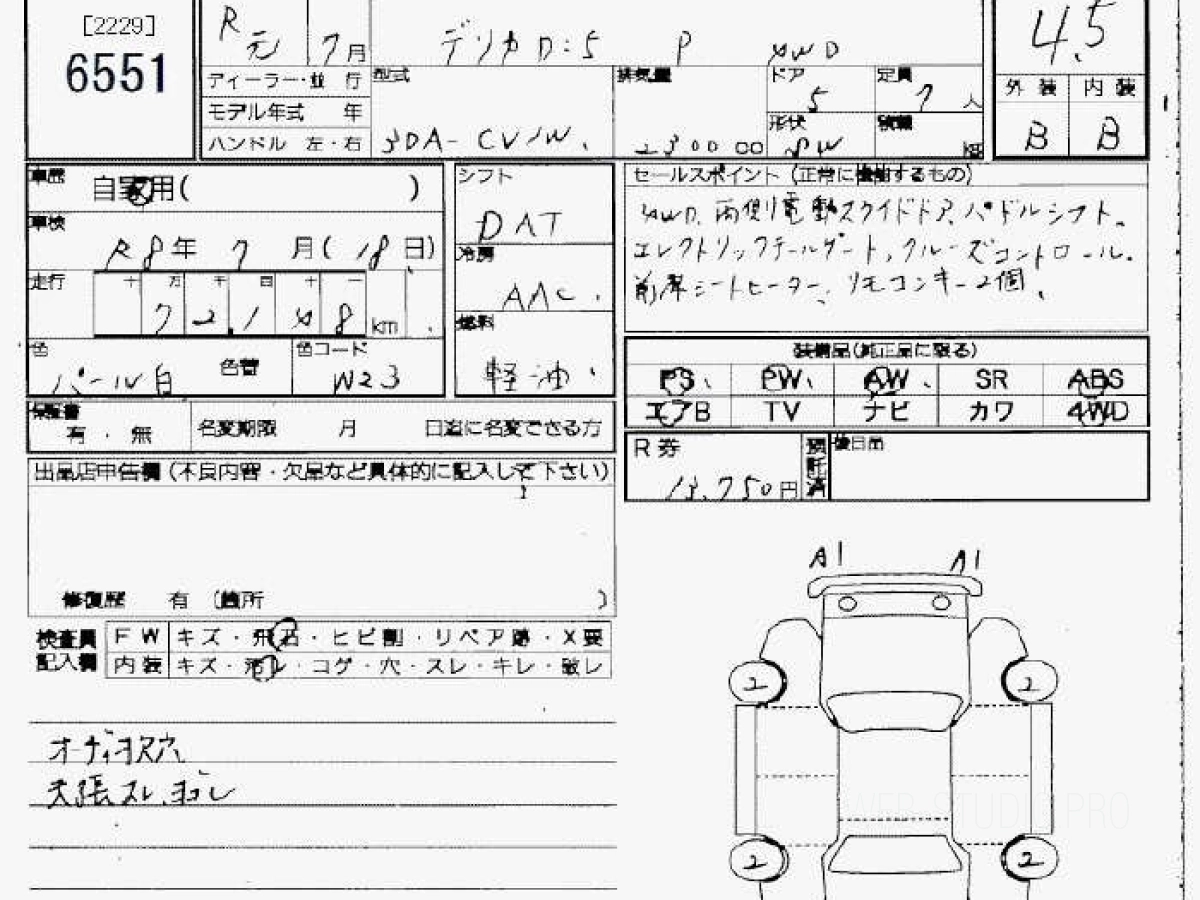 [2229]
6551
R元 7月
デリカD:5 P 4WD
4.5
ディーラー・並 行
型式
排気量
ドア
5
定員
7 人
外 装
内 装
モデル年式 年
形状
積載
ハンドル 左・右
3DA-CV1W.
2300 00
SW
kg
B
B
車歴
自家用( )
車検
R8年 7 月(18日)
走行
十 万 千 百 十 一
7 2,1 4 8 km
色
パール白
色替
色コード
W23
シフト
DAT
冷房
AAC.
燃料
軽油.
セールスポイント(正常に機能するもの)
4WD.両側電動スライドドア.パドルシフト.
エレクトリックテールゲート,クルーズコントロール.
前席シートヒーター、リモコンキー2個.
装備品(純正品に限る)
PS. PW. AW. SR ABS
エアB TV ナビ カワ 4WD
保証書
有 . 無
名変期限 月 日迄に名変できる方
R券
13,750円
預託済
後日品
出品店申告欄(不良内容・欠品など具体的に記入して下さい)
修復歴 有 (箇所 )
検査員
記入欄
FW キズ・飛石・ヒビ割・リペア跡・X要
内装 キズ・汚レ・コゲ・穴・スレ・キレ・破レ
オーディオ欠穴
天張スレ,ヨゴレ
A1 A1
2 2
WEB STUDIO PRO
2 2